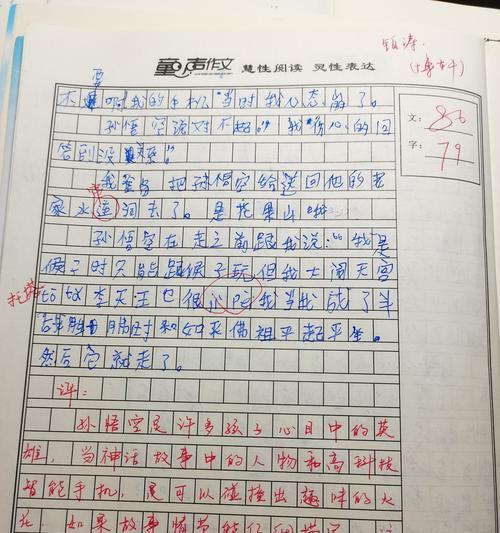 镇涛
童声作文 慧性阅读 灵性表达
要
不 啊我的手机"当时我心态崩了。
文：86
孙悟空说对不起。"我伤心的回
答到没关系。
字：79
我爸爸把孙悟空给送回他的老
帘
家水连洞去了。是花果山
孙悟空在走之前跟我说："我是
猴子时只能跟猴子玩但我大闹天宫
托塔
tō tǎ 李天王也很 我当我成了斗
战胜 时和如来佛祖平起平坐。
然后它就走了。
评：
孙悟空是许多孩子心目中的英
雄，当神话故事中的人物和高科技
智能手机，是可以碰撞出趣味的火
花，如果故事情节能仔细描写，这